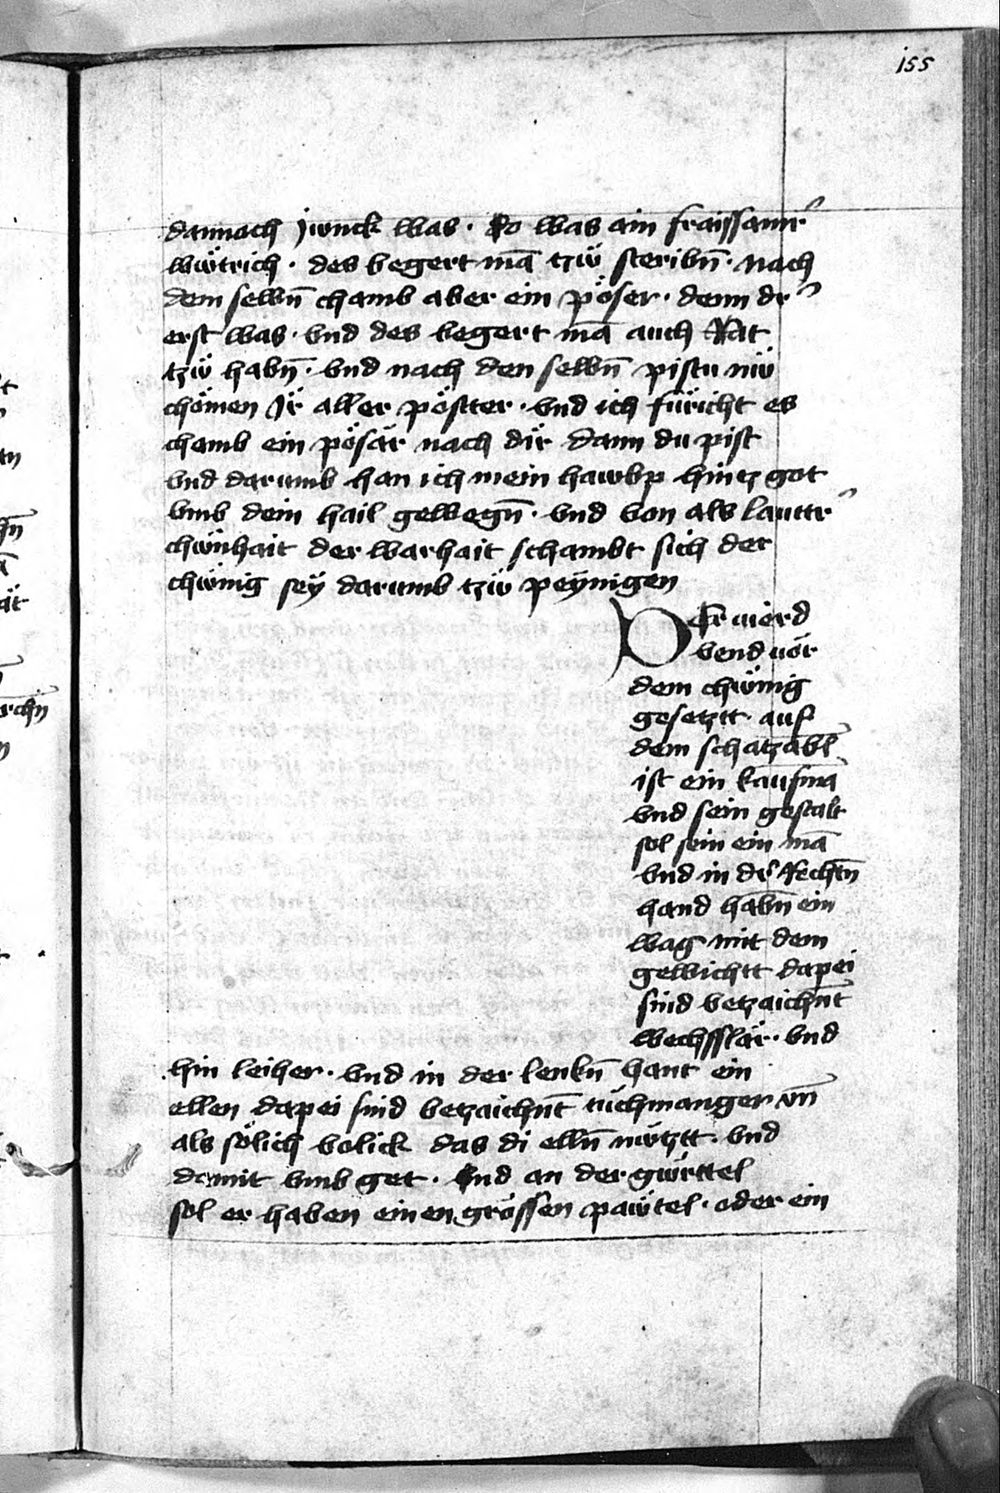 155
dannoch jwnck was · So was ain fraissamr̾
wüttrich · des begert mā tzw̋ steribn̄ · nach
dem selbn̄ chamb aber ein pöser · denn dr̾
erst was · vnd des begert mā auch Rat
tzw̋ habn̄ · vnd nach den selbn̄ pistu nw̋
chömen Jr̈ aller pöster · vnd ich füricht es
chemb ein pösär nach dir̈ dann du pist
vnd darumb han ich mein hawbp hintz got
vmb dein hail gewegn̄ · vnd von als lauttr̾
chw̋nhait der warhait schambt sich der
chw̋nig sey̋ darumb tzw̋ pey̋nigen
Der vierd
vend vör
dem chw̋nig
gesetztt auf
dem schatzabl̄
ist ein kaufmā
vnd sein gestalt
sol sein ein mā
vnd in dr̾ Rechtn̄
hand habn̄ ein
wag mit dem
gewichtt dapei
sind betzaichn̄t
wechsslär · vnd
hin leiher · vnd in der lenkn̄ hant ein
ellen dapei sind betzaichn̄t tüchmanger vn̄
als sölich volick das di elln̄ nw̋tztt · vnd
damit vmb get · Vnd an der gw̋rttel
sol er haben einen grössen paw̋tel · oder ein